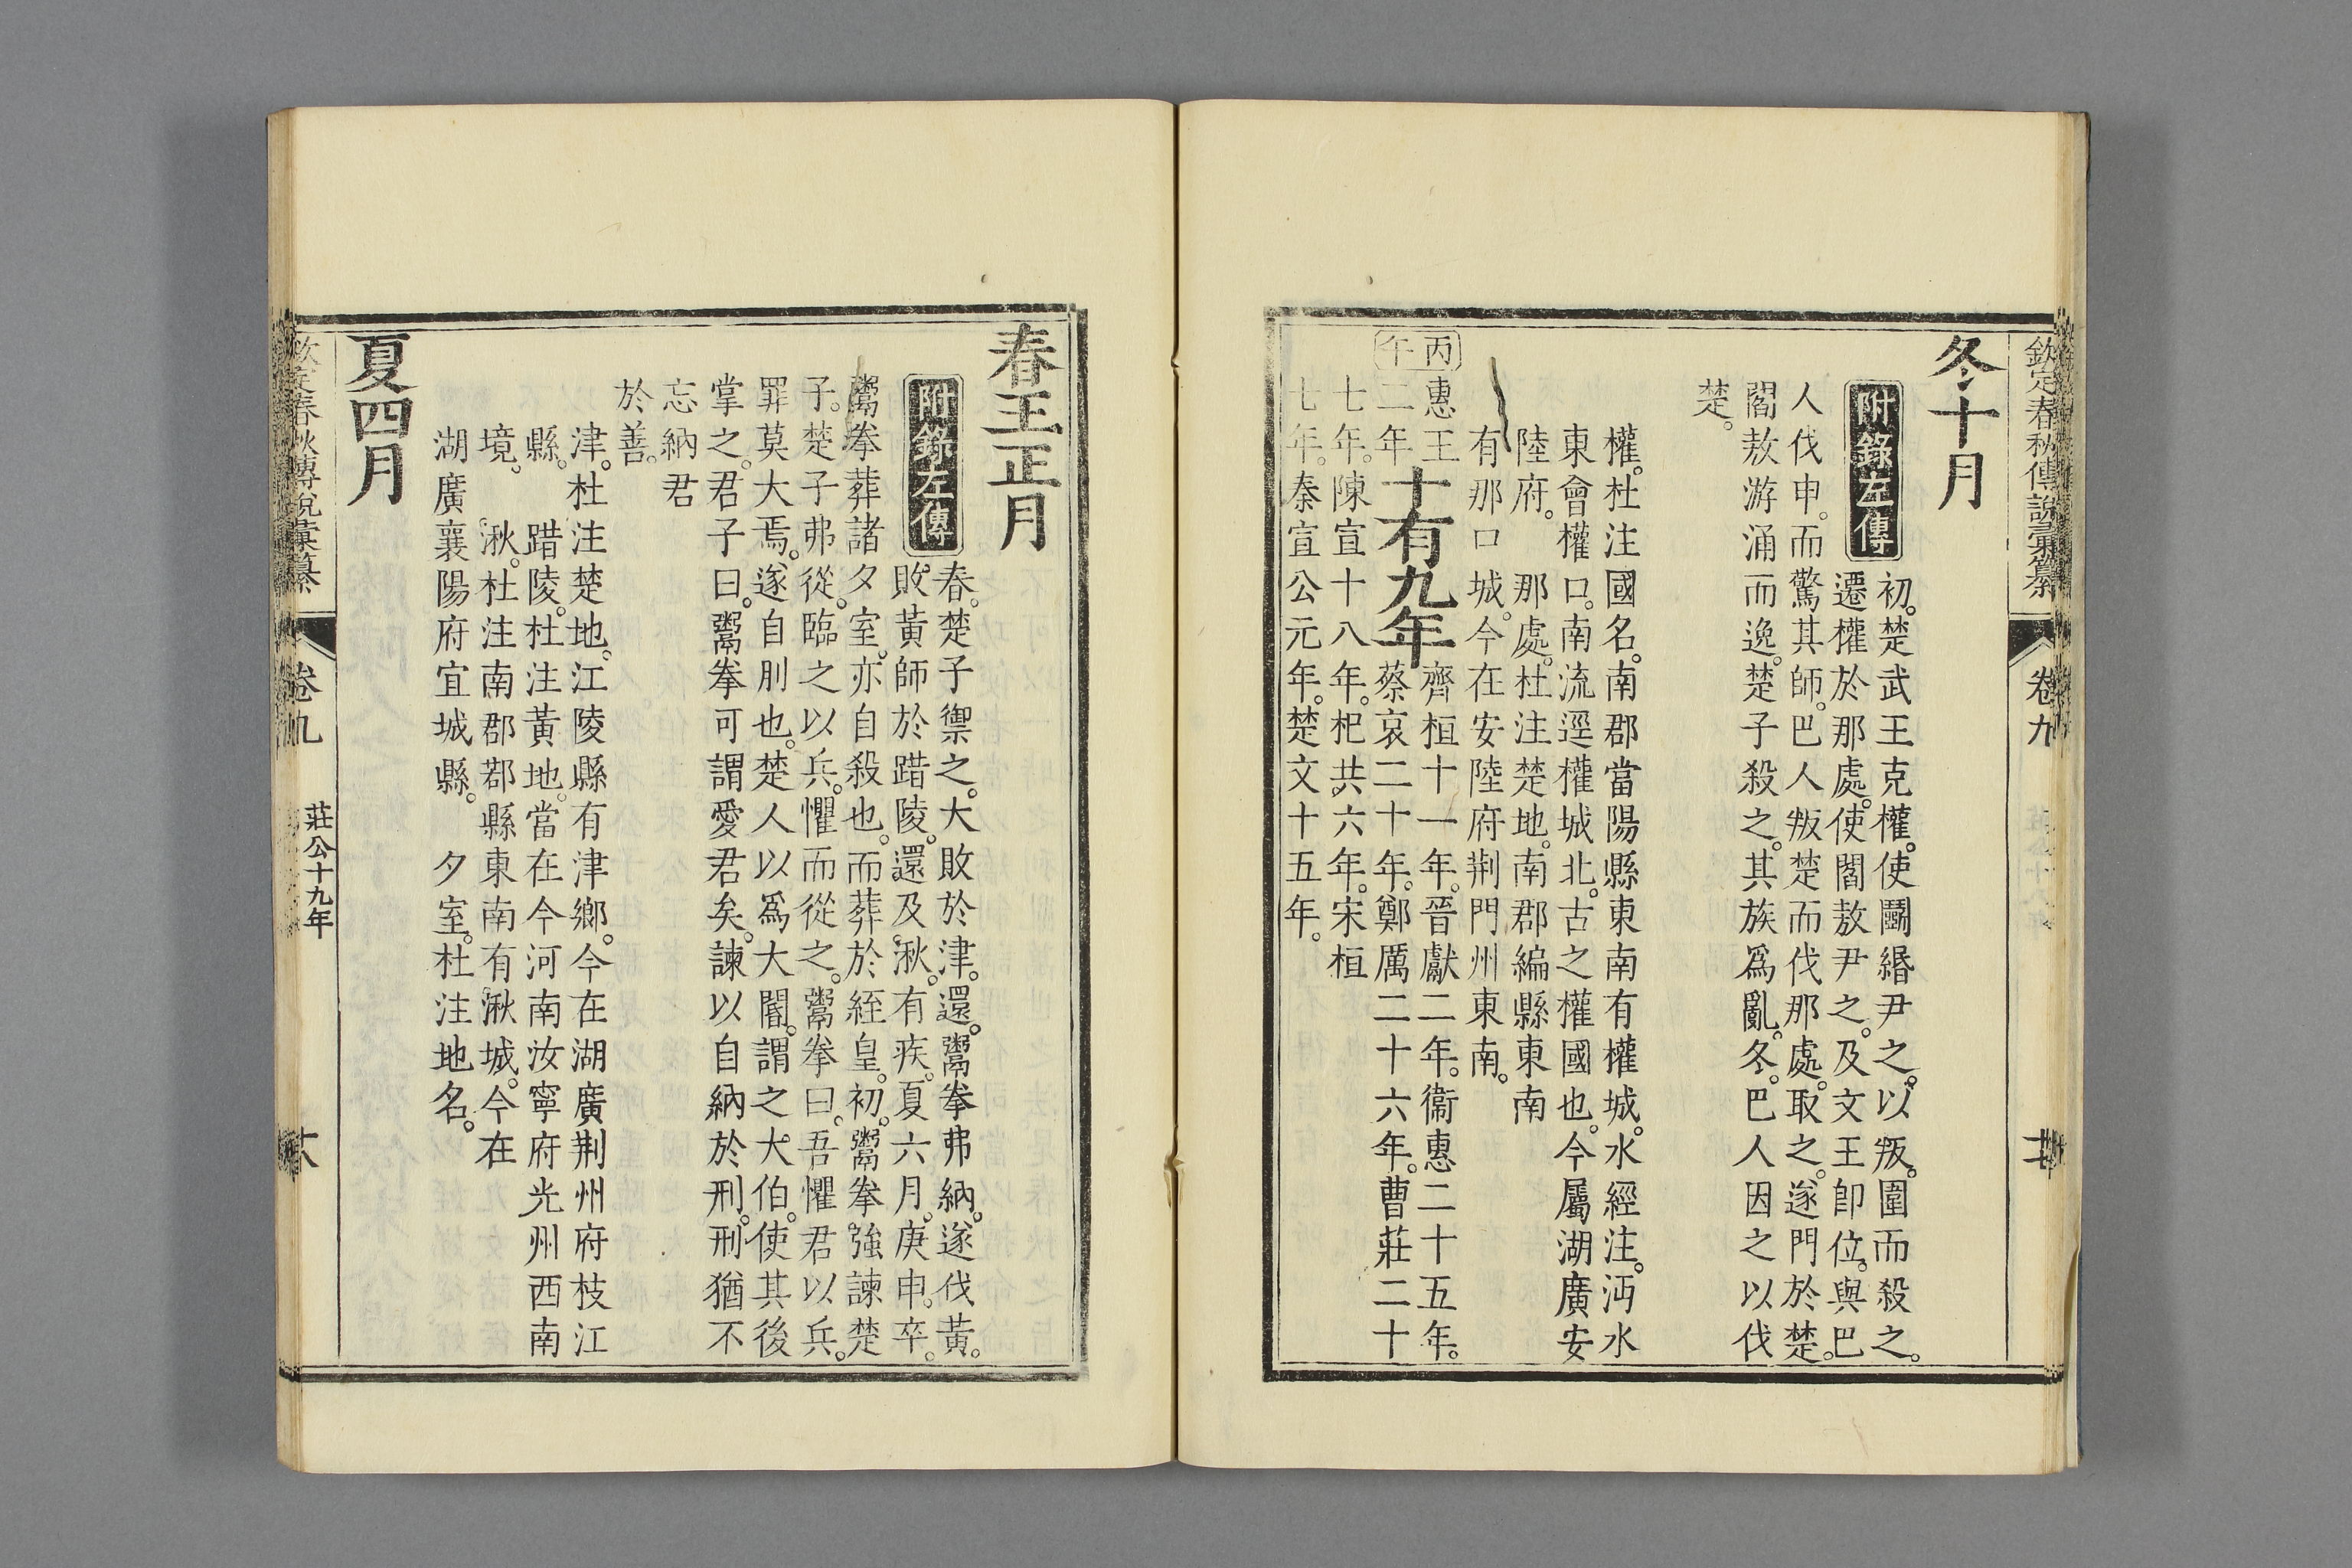 欽定春秋傳說彙纂 卷九
冬十月
附錄左傳
初。楚武王克權。使鬭緡尹之。以叛。圍而殺之。
遷權於那處。使閻敖尹之。及文王卽位。與巴
人伐申。而驚其師。巴人叛楚而伐那處。取之。遂門於楚。
閻敖游涌而逸。楚子殺之。其族爲亂。冬。巴人因之以伐
楚。
權。杜注國名。南郡當陽縣東南有權城。水經注。沔水
東會權口。南流逕權城北。古之權國也。今屬湖廣安
陸府。 那處。杜注楚地。南郡編縣東南
有那口城。今在安陸府荆門州東南。
丙午
惠王二年
十有九年
齊桓十一年。晉獻二年。衞惠二十五年。
蔡哀二十年。鄭厲二十六年。曹莊二十
七年。陳宣十八年。杞共六年。宋桓
七年。秦宣公元年。楚文十五年。
春王正月
附錄左傳
春。楚子禦之。大敗於津。還。鬻拳弗納。遂伐黃。
敗黃師於踖陵。還及湫。有疾。夏六月。庚申。卒。
鬻拳葬諸夕室。亦自殺也。而葬於絰皇。初。鬻拳強諫楚
子。楚子弗從。臨之以兵。懼而從之。鬻拳曰。吾懼君以兵。
罪莫大焉。遂自刖也。楚人以爲大閽。謂之大伯。使其後
掌之。君子曰。鬻拳可謂愛君矣。諫以自納於刑。刑猶不
忘納君
於善。
津。杜注楚地。江陵縣有津鄉。今在湖廣荆州府枝江
縣。 踖陵。杜注黃地。當在今河南汝寧府光州西南
境。 湫。杜注南郡鄀縣東南有湫城。今在
湖廣襄陽府宜城縣。 夕室。杜注地名。
夏四月
欽定春秋傳說彙纂 卷九 莊公十九年